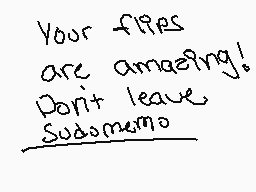 Your flips
are amazing!
Don't leave
Sudomemo